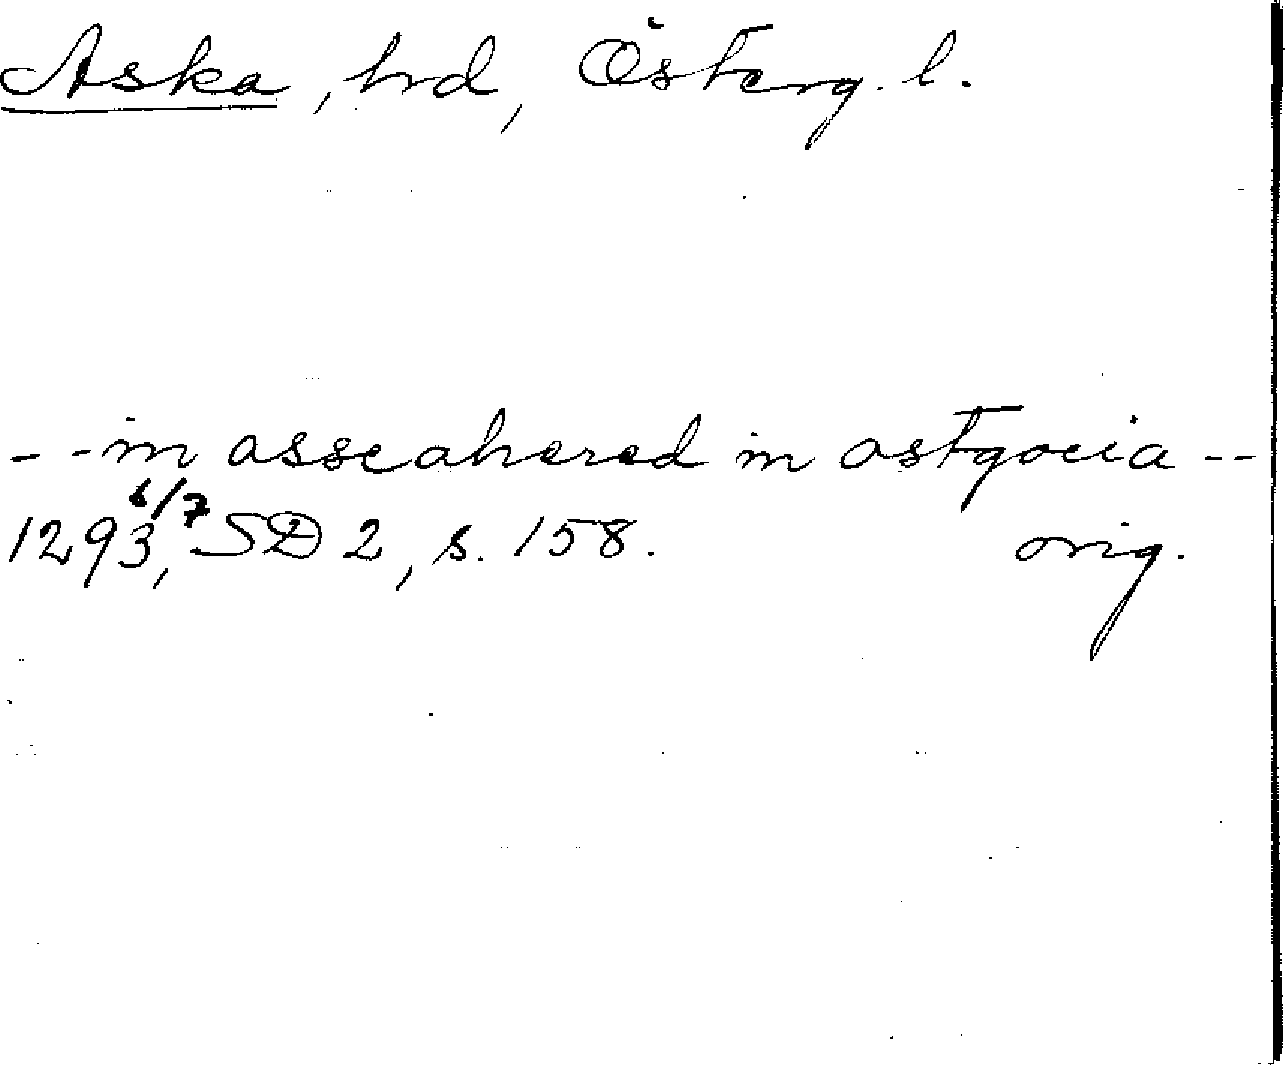 Aska, hrd, Österg. l.
- - in asscahered in astgocia - -
1293 6/7, SD 2, s. 158. orig.